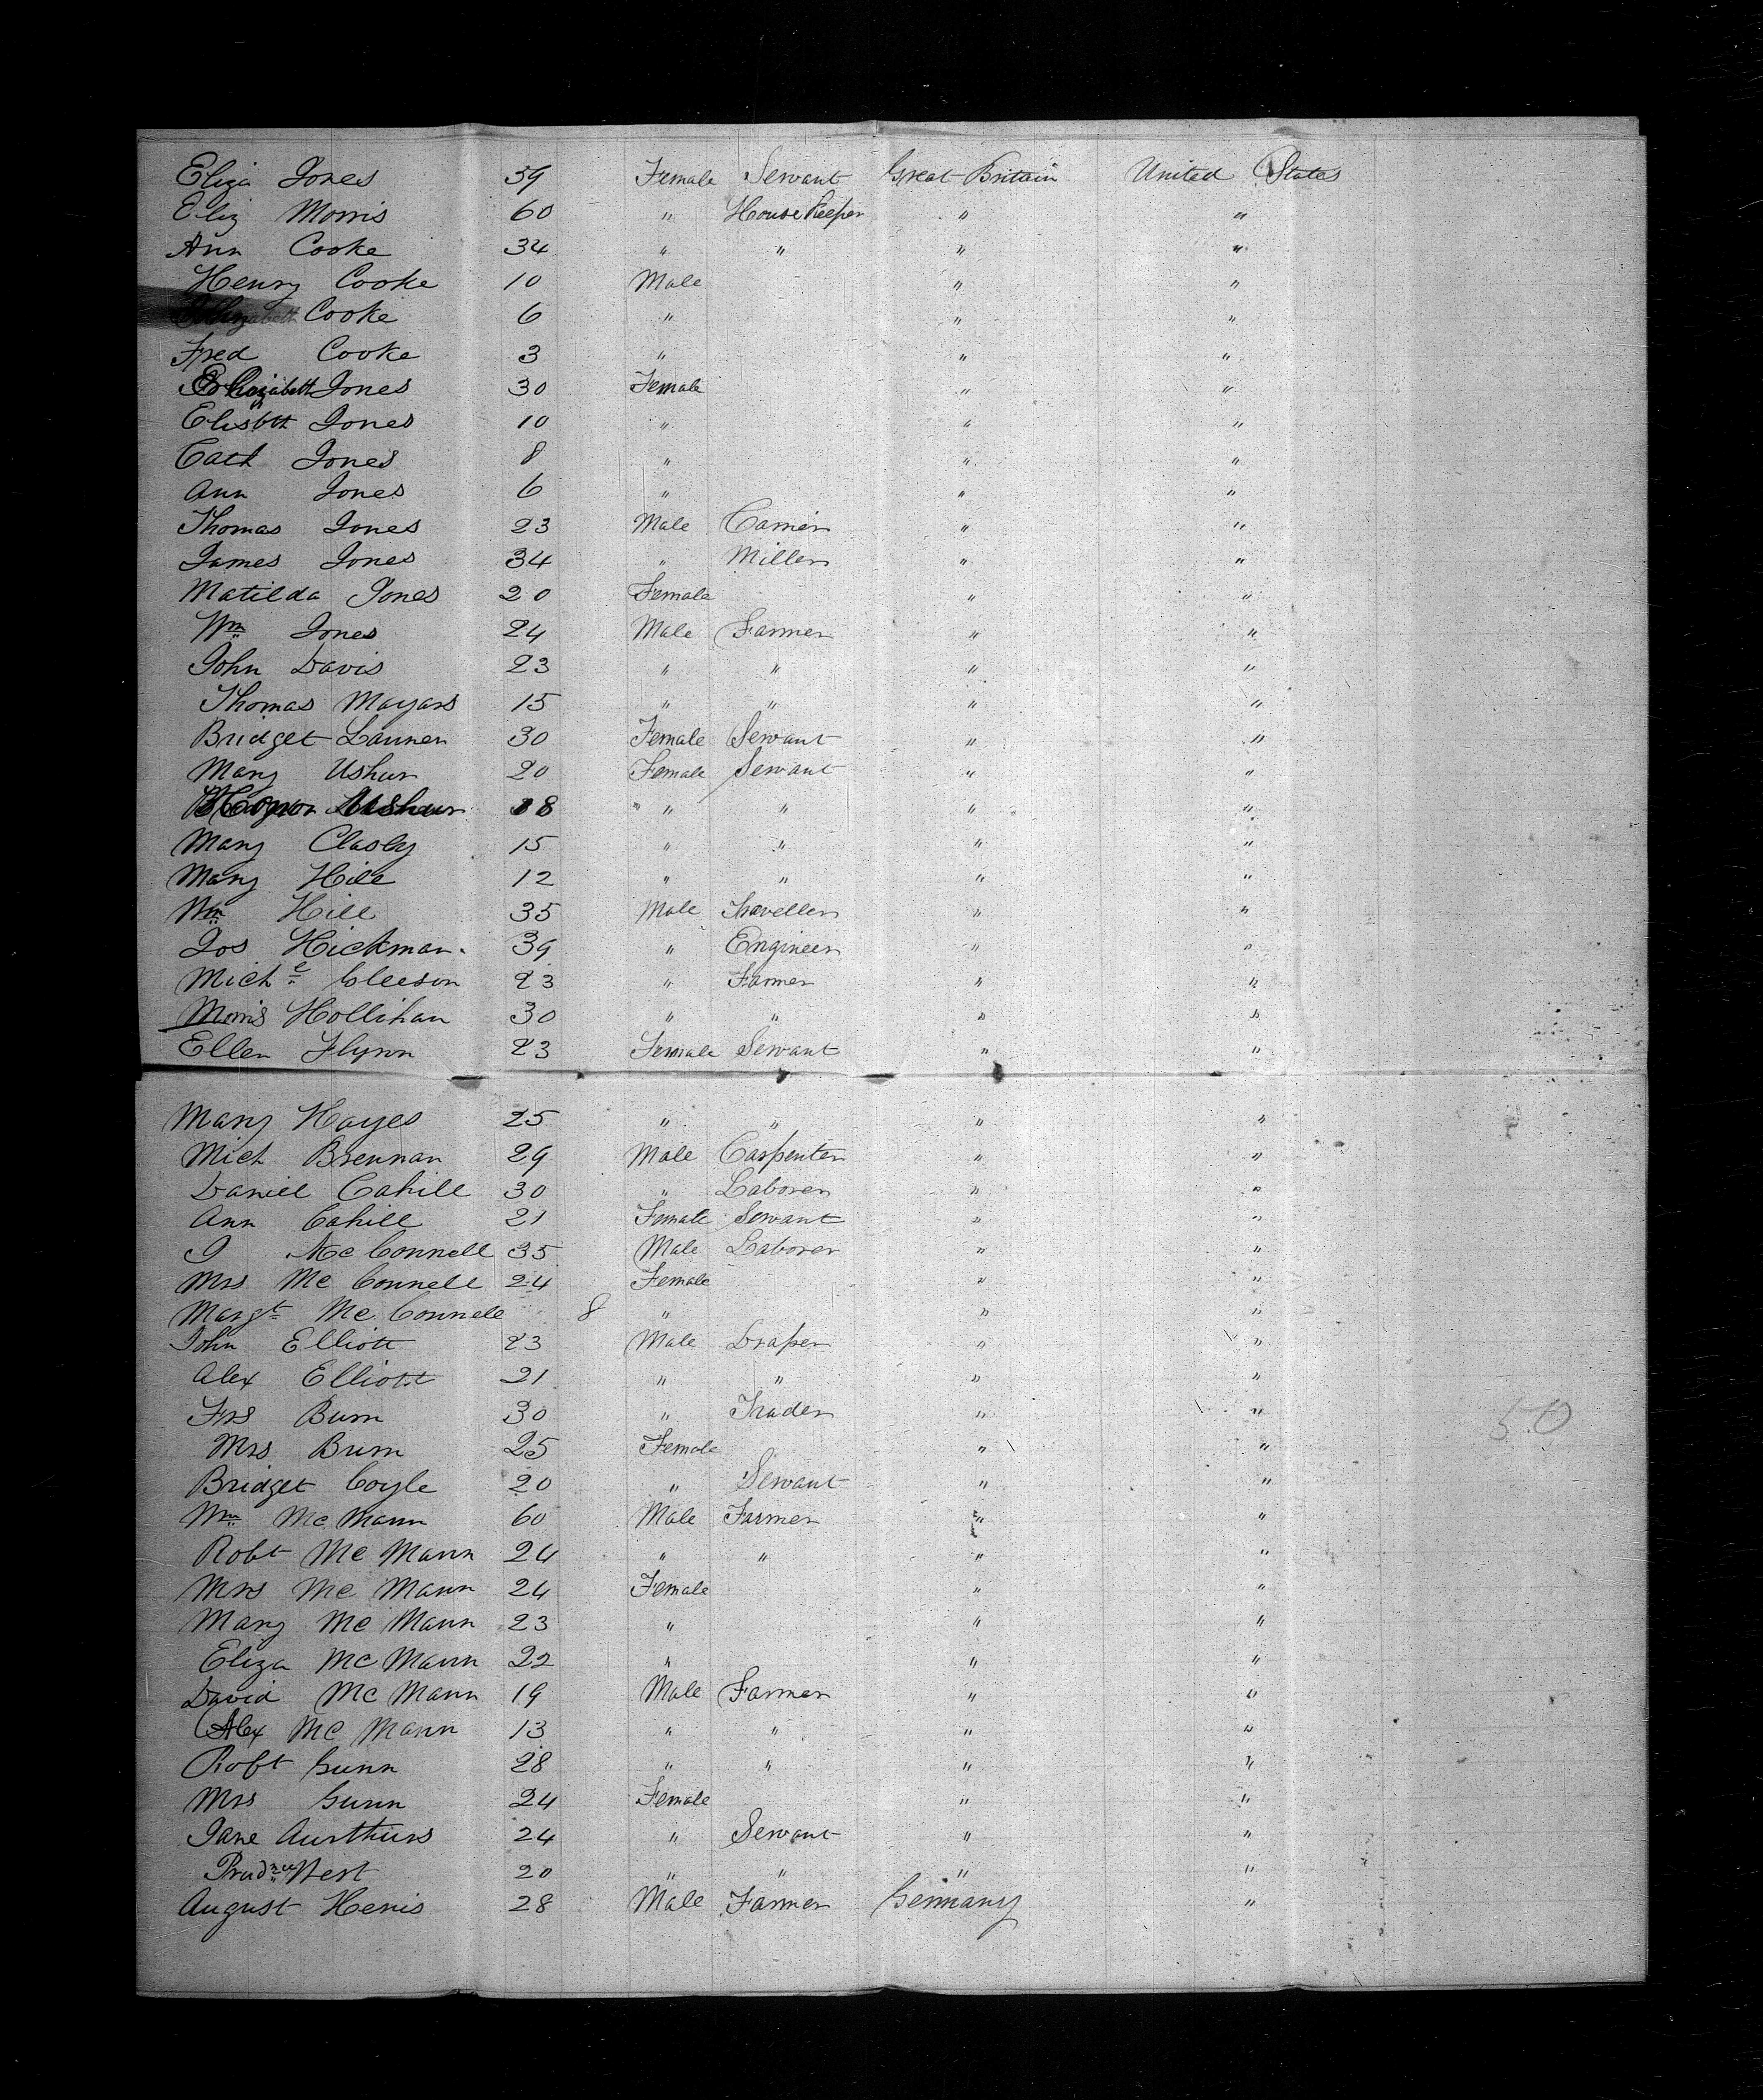 Eliza Jones 39 Female Servant Great Britain United States
Eliz Morris 60 " House Keeper " "
Ann Cooke 34 " " " "
Henry Cooke 10 Male " "
Cooke 6 " " "
Fred Cooke 3 " " "
Elizabeth Jones 30 Female " "
Elisbth Jones 10 " " "
Cath Jones 8 " " "
Ann Jones 6 " " "
Thomas Jones 23 Male " "
James Jones 34 " Miller " "
Matilda Jones 20 Female " "
Wm Jones 24 Male Farmer " "
John Davis 23 " " " "
Thomas Mayars 15 " " " "
Bridget Lannen 30 Female Servant " "
Mary Ushur 20 Female Servant " "
18 " " " " "
Mary Clasby 15 " " " "
Mary Hill 12 " " " "
Wm Hill 35 Male Traveller " "
Jos Hickman 39 " Engineer " "
Michl Gleeson 23 " Farmer " "
Morris Hollihan 30 " " " "
Ellen Flynn 23 Female Servant " "
Mary Hayes 25 " " " "
Mich Brennan 29 Male Carpenter " "
Daniel Cahill 30 " Laborer " "
Ann Cahill 21 Female Servant " "
J McConnell 35 Male Laborer " "
Mrs McConnell 24 Female " "
Margt McConnell 8 " " "
John Elliott 23 Male Draper " "
Alex Elliott 21 " " " "
Frs Burn 30 " Trader " "
Mrs Burn 25 Female " "
Bridget Coyle 20 " Servant " "
Wm McMann 60 Male Farmer " "
Robt McMann 24 " " " "
Mrs McMann 24 Female " "
Mary McMann 23 " " "
Eliza McMann 22 " " "
David McMann 19 Male Farmer " "
Alex McMann 13 " " " "
Robt Gunn 28 " " " "
Mrs Gunn 24 Female " "
Jane Aurthurs 24 " Servant " "
Prudnce West 20 " " " "
August Henis 28 Male Farmer Germany "
50